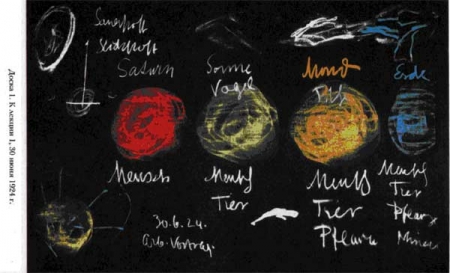 Доска 1. К лекции I, 30 июня 1924 г.
Sauerstoff
Stickstoff
Saturn Sonne Mond Erde
Vogel
Mensch Mensch Mensch Mensch
Tier Tier Tier
Pflanz Pflanz
Miner
30.6.24.
Arb. Vortrag.